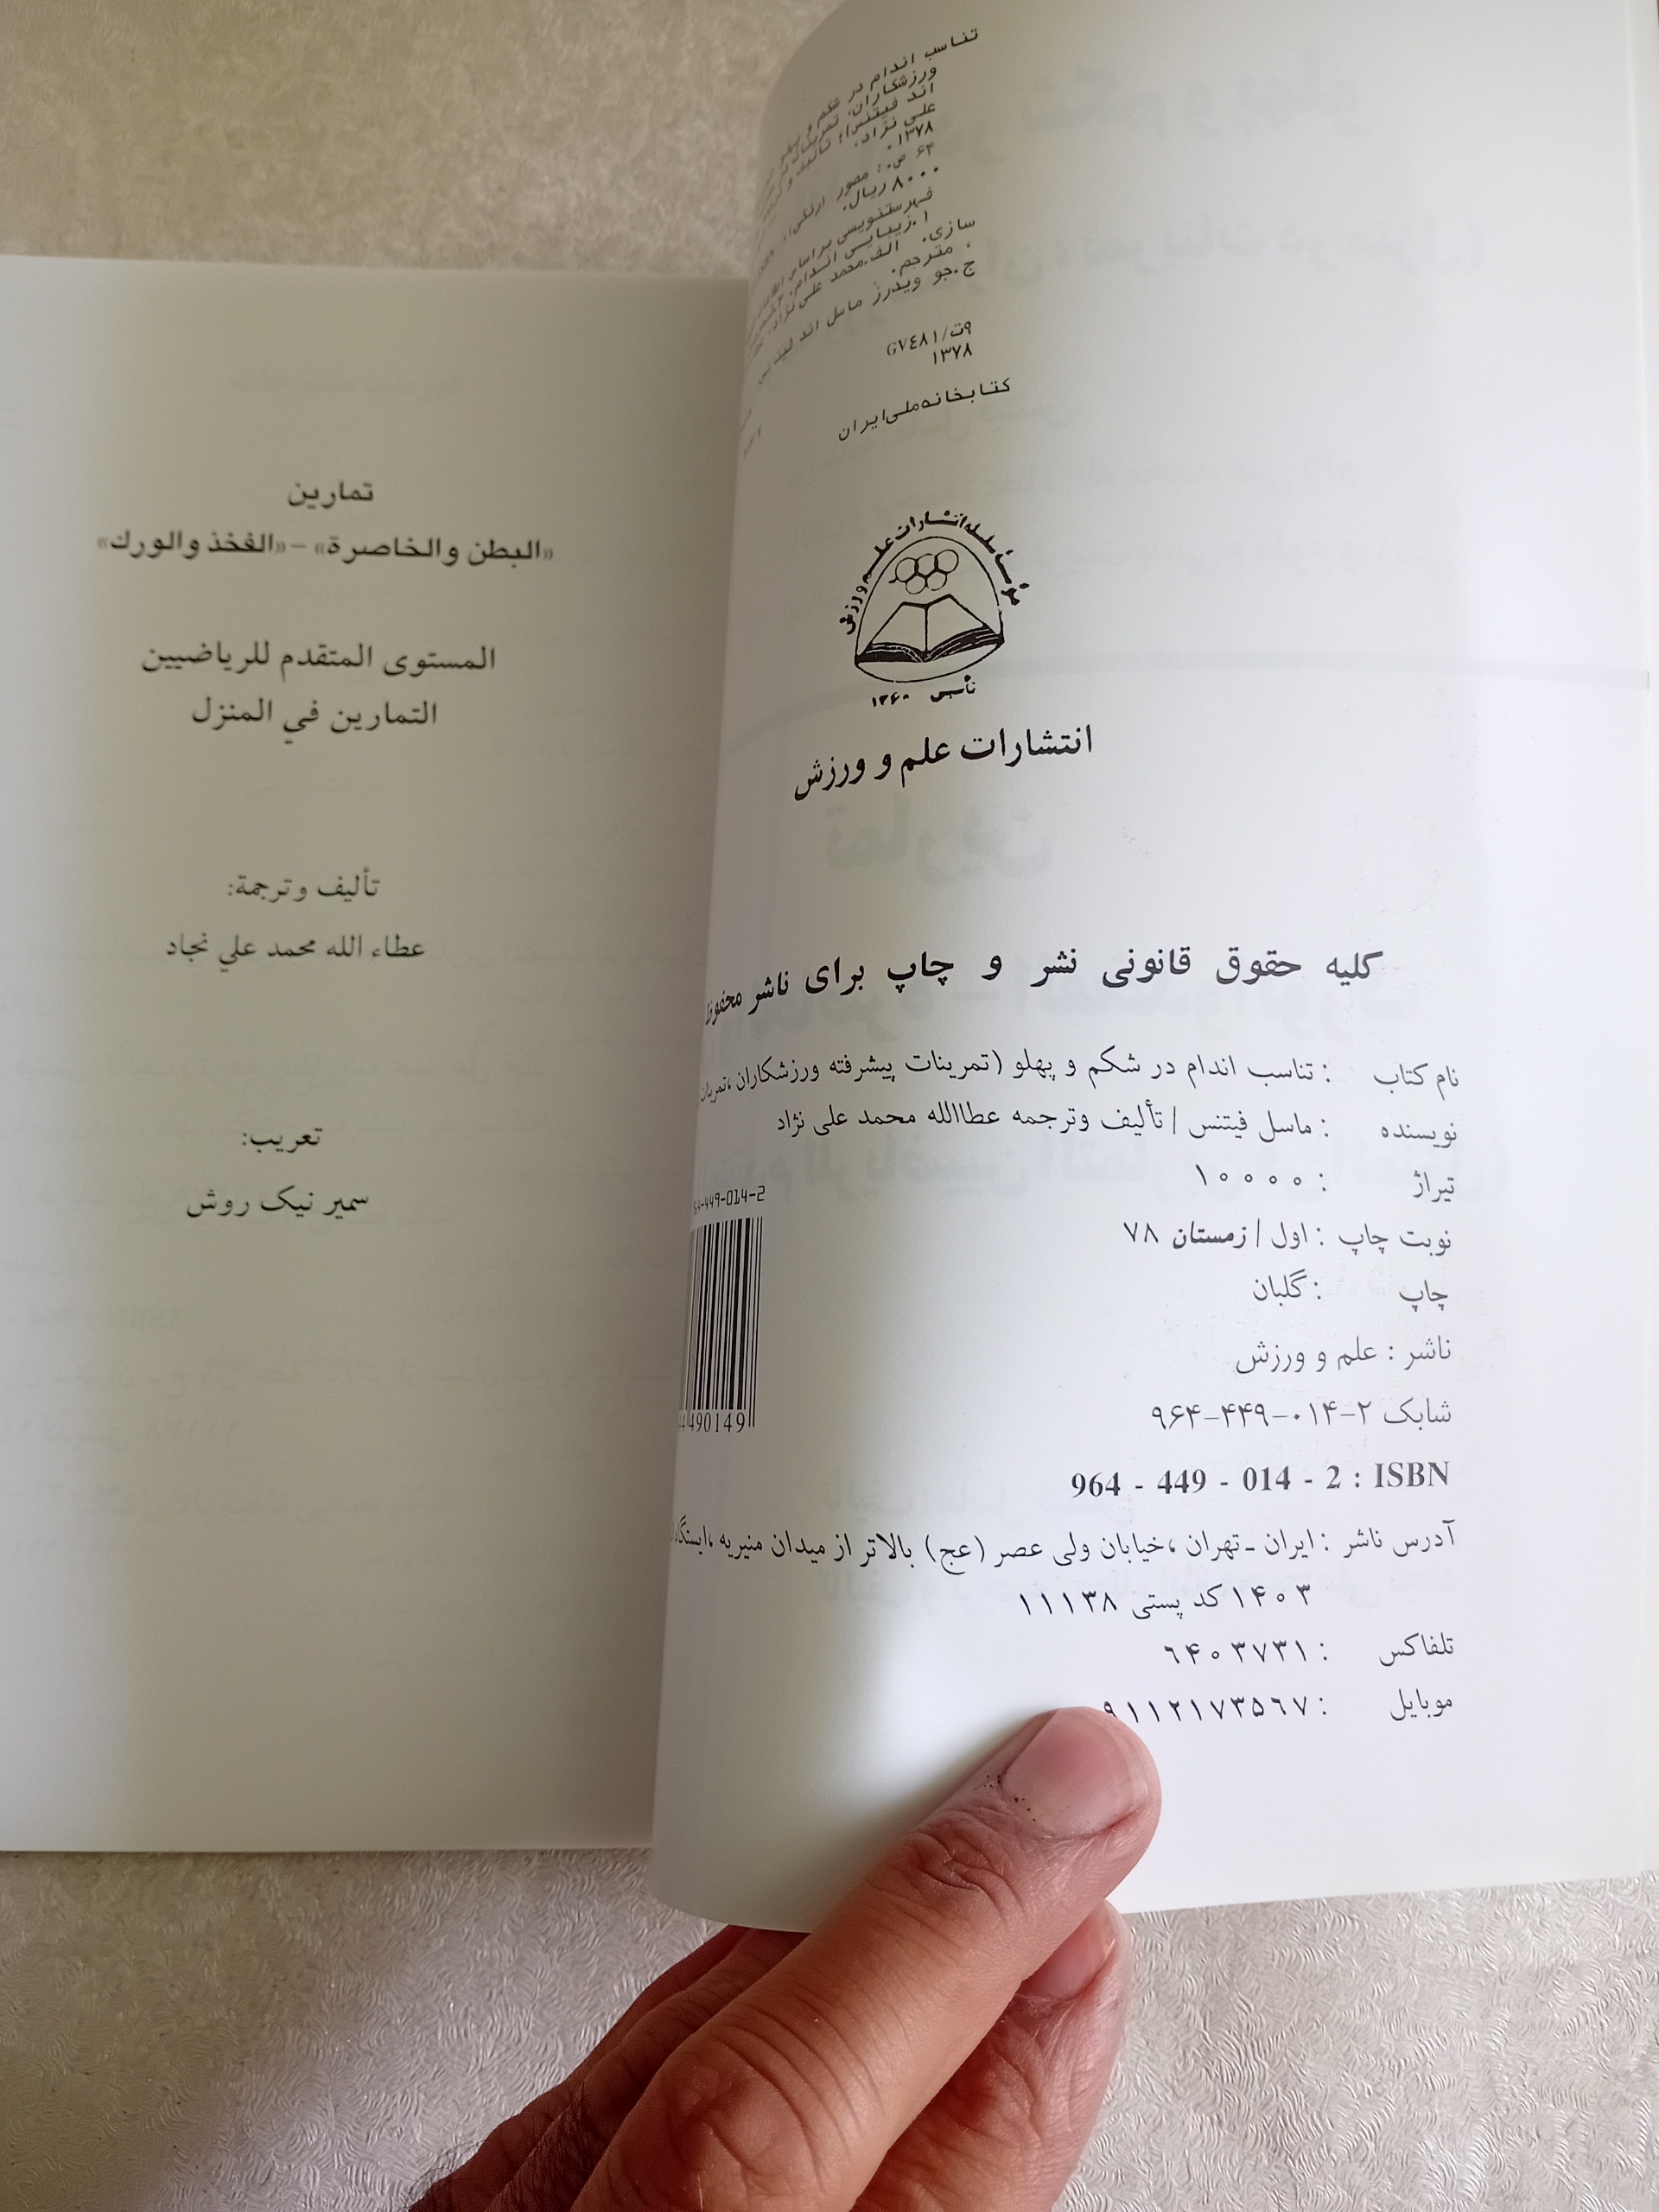 تناسب اندام در شکم و پهلو
ورزشکاران، تمرینات در
اند فیتنس)؛ تالیف و
علی نژاد.
۱۳۷۸.
۶۴ ص.: مصور (رنگی).
۸۰۰۰ ریال.
فهرستنویسی براساس
۱. زیبایی اندام. ۲.
سازی. الف. محمد علی نژاد،
، مترجم.
ج. جو ویدرز ماسل اند فیتنس
GV۴۸۱/ت۹
۱۳۷۸
کتابخانه ملی ایران
مؤسسه انتشارات علم و ورزش
تأسیس ۱۳۶۰
انتشارات علم و ورزش
کلیه حقوق قانونی نشر و چاپ برای ناشر محفوظ
نام کتاب : تناسب اندام در شکم و پهلو (تمرینات پیشرفته ورزشکاران ،
نویسنده : ماسل فیتنس / تألیف وترجمه عطاالله محمد علی نژاد
تیراژ : ۱۰۰۰۰
نوبت چاپ : اول / زمستان ۷۸
چاپ : گلبان
ناشر : علم و ورزش
شابک ۲-۰۱۴-۴۴۹-۹۶۴
964 - 449 - 014 - 2 : ISBN
آدرس ناشر : ایران - تهران ،خیابان ولی عصر (عج) بالاتر از میدان منیریه ،
۱۴۰۳ کد پستی ۱۱۱۳۸
تلفاکس : ۶۴۰۳۷۳۱
موبایل : ۹۱۱۲۱۷۳۵۶۷
4-449-014-2
490149
تمارين
«البطن والخاصرة» – «الفخذ والورك»
المستوى المتقدم للرياضيين
التمارين في المنزل
تأليف وترجمة:
عطاء الله محمد علي نجاد
تعريب:
سمير نيک روش